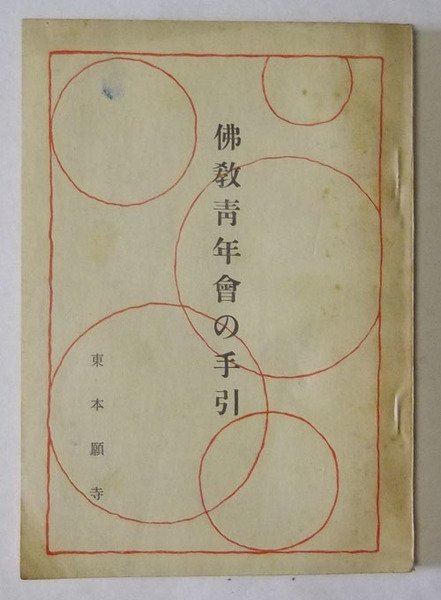 佛教靑年會の手引
東本願寺